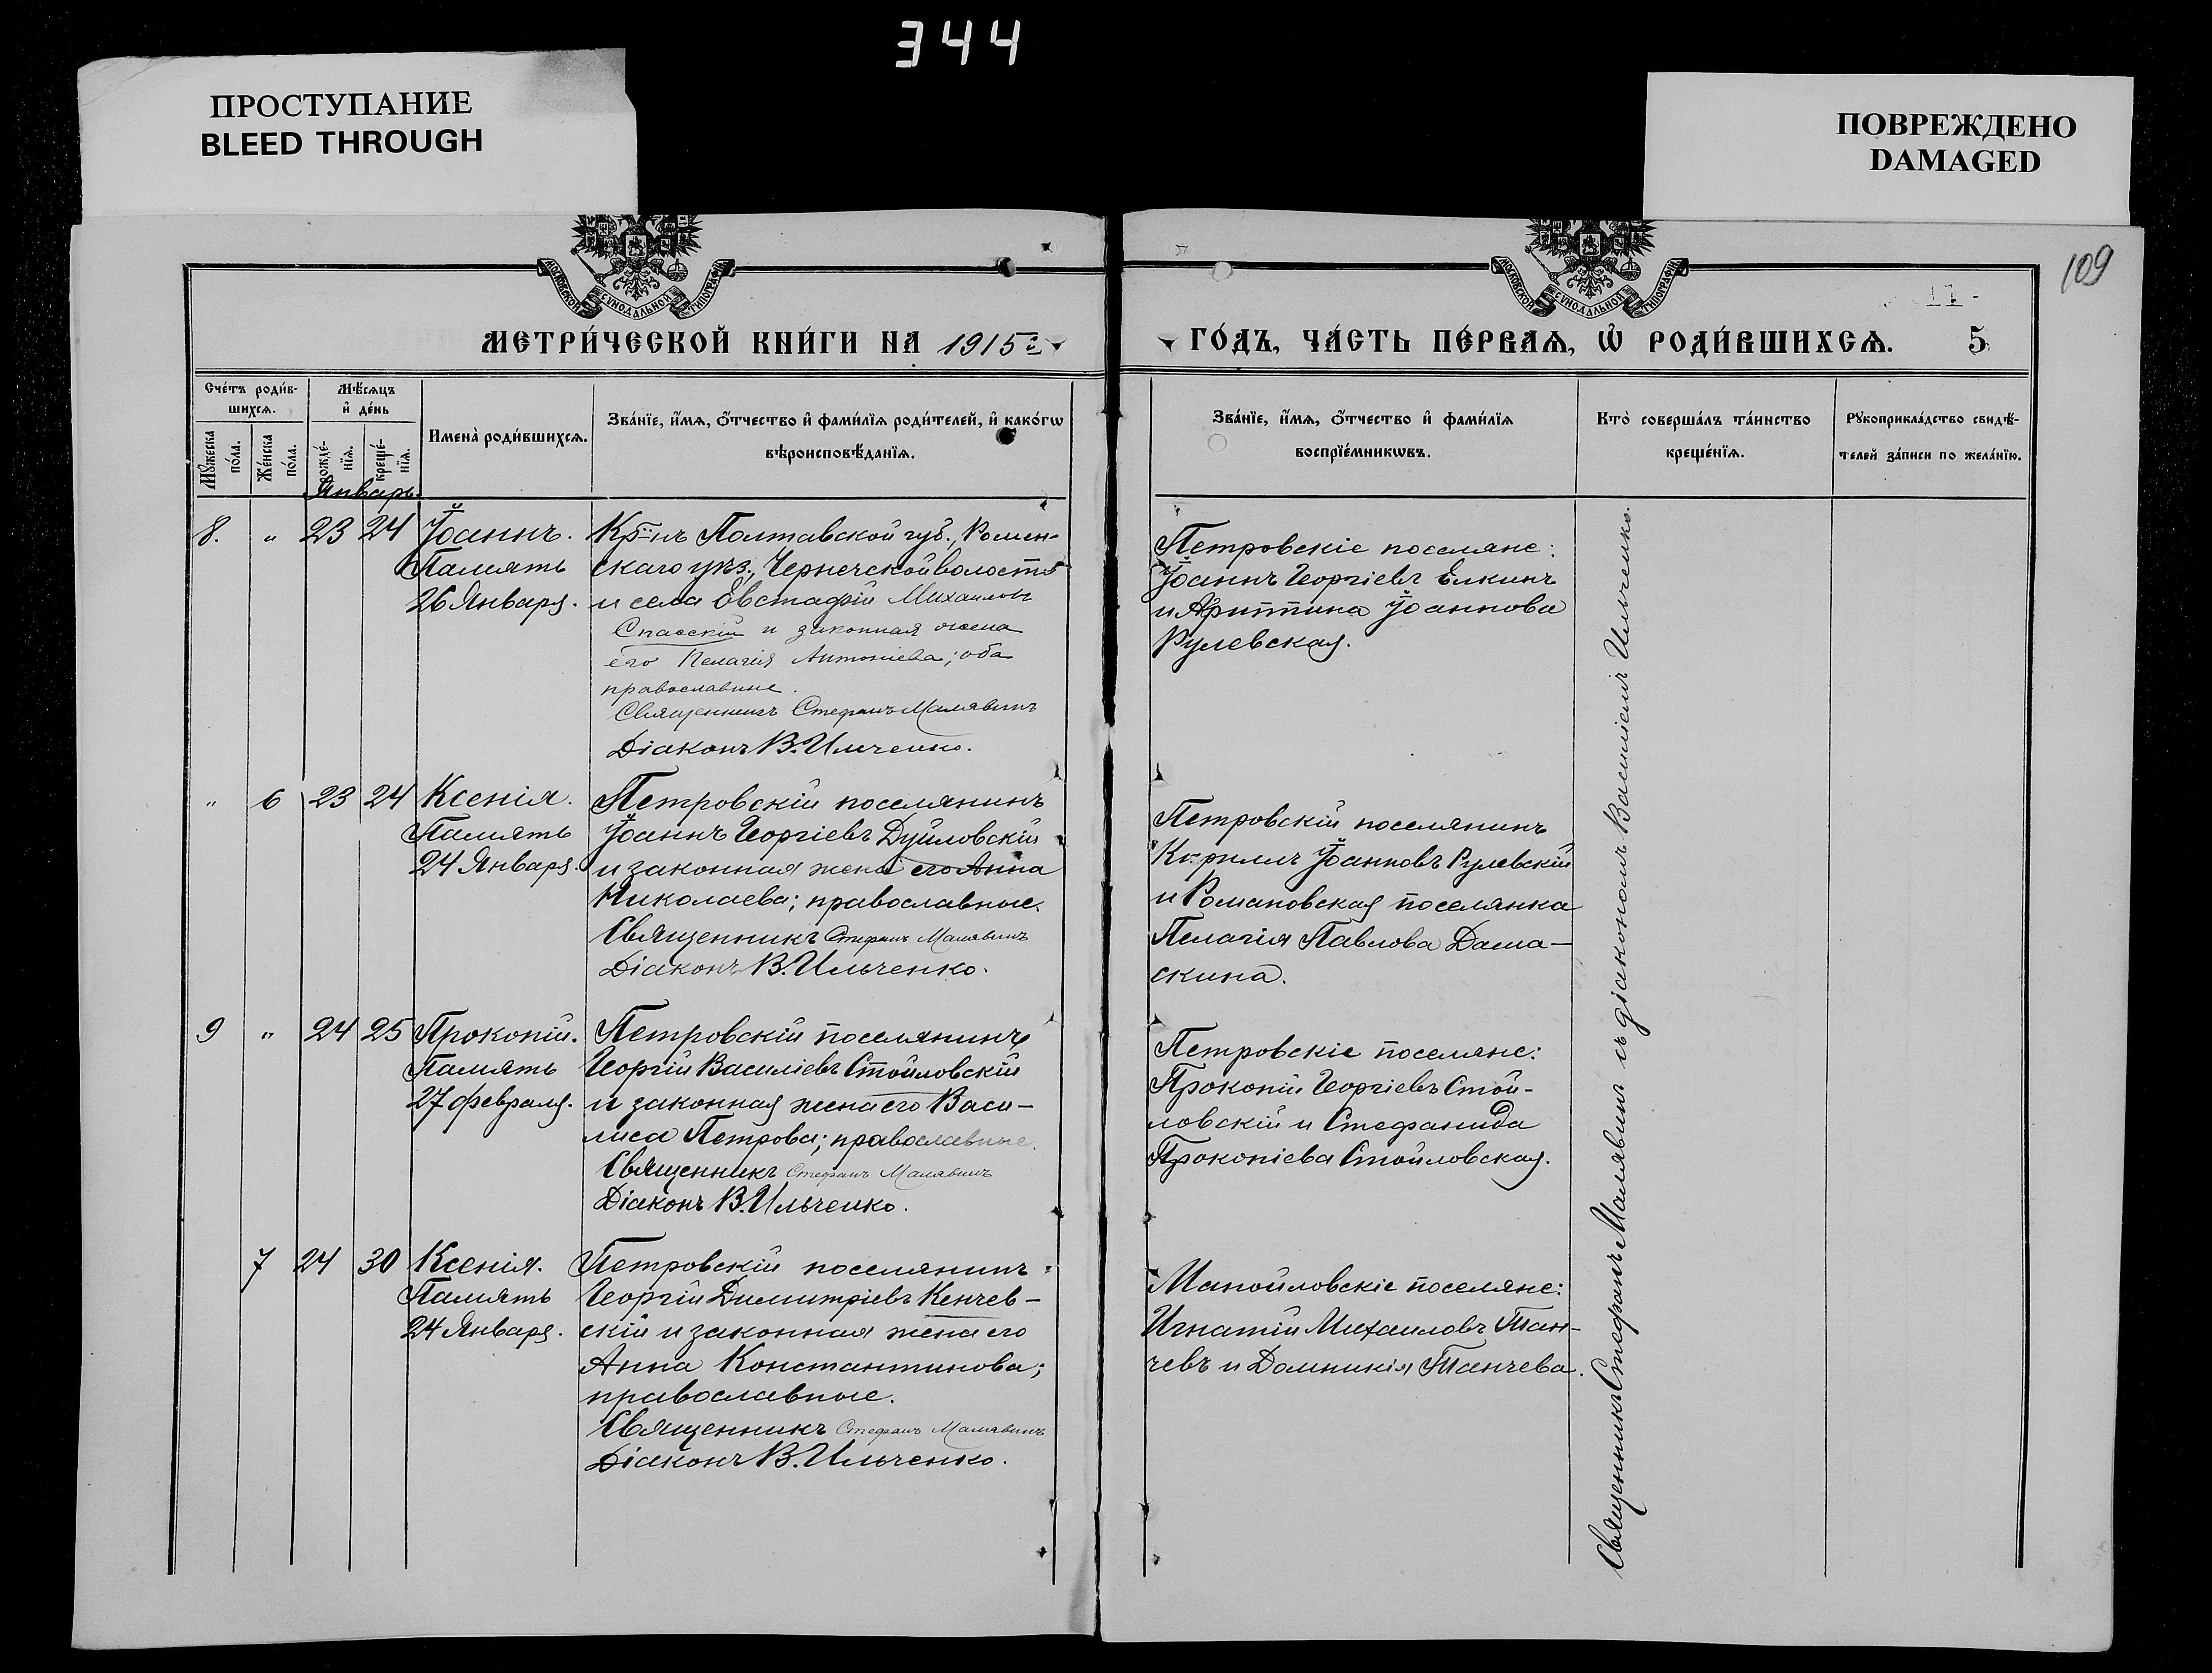 344
ПРОСТУПАНИЕ
BLEED THROUGH
ПОВРЕЖДЕНО
DAMAGED
109
МОСКОВСКОЙ СѴНОДАЛЬНОЙ ТИПОГРАФІИ
МОСКОВСКОЙ СѴНОДАЛЬНОЙ ТИПОГРАФІИ
МЕТРИ́ЧЕСКОЙ КНИ́ГИ НА 1915 г.
ГО́ДЪ, ЧА́СТЬ ПЕ́РВАѦ, Ѽ РОДИ́ВШИХСѦ. 5
Сче́тъ роди́в-
шихсѧ.
Мѣ́сѧцъ
и҆ де́нь
Мꙋ́жеска
по́ла.
Же́нска
по́ла.
рожде́-
нїѧ.
креще́-
нїѧ.
Имена̀ роди́вшихсѧ.
Зва́нїе, и҆́мѧ, ѻ҆́тчество и҆ фами́лїѧ роди́телей, и҆ како́гѡ
вѣроисповѣ́данїѧ.
Зва́нїе, и҆́мѧ, ѻ҆́тчество и҆ фами́лїѧ
воспрїе́мникѡвъ.
Кто̀ соверша́лъ та́инство
креще́нїѧ.
Рꙋкоприкла́дство свидѣ́-
телей за́писи по жела́нїю.
Январь.
8. " 23 24 Іоаннъ.
Память
26 Января.
Кр-нъ Полтавской губ., Ромен-
скаго уѣз., Чернечской волости
и села Евстафій Михаиловъ
Спасскій и законная жена
его Пелагія Антоніева; оба
православные.
Священникъ Стефанъ Малявинъ
Діаконъ В. Ильченко.
Петровскіе поселяне:
Іоаннъ Георгіевъ Елкинъ
и Агриппина Іоаннова
Рулевская.
" 6 23 24 Ксенія.
Память
24 Января.
Петровскій поселянинъ
Іоаннъ Георгіевъ Дуйловскій
и законная жена его Анна
Николаева; православные.
Священникъ Стефанъ Малявинъ
Діаконъ В. Ильченко.
Петровскій поселянинъ
Кириллъ Іоанновъ Рулевскій
и Романовская поселянка
Пелагія Павлова Дама-
скина.
9 " 24 25 Прокопій.
Память
27 февраля.
Петровскій поселянинъ
Георгій Василіевъ Стойловскій
и законная жена его Васи-
лиса Петрова; православные.
Священникъ Стефанъ Малявинъ
Діаконъ В. Ильченко.
Петровскіе поселяне:
Прокопій Георгіевъ Стой-
ловскій и Стефанида
Прокопіева Стойловская.
7 24 30 Ксенія.
Память
24 Января.
Петровскій поселянинъ
Георгій Димитріевъ Кенчев-
скій и законная жена его
Анна Константинова;
православные.
Священникъ Стефанъ Малявинъ
Діаконъ В. Ильченко.
Манойловскіе поселяне:
Игнатій Михаиловъ Тан-
чевъ и Домникія Танчева.
Священникъ Стефанъ Малявинъ съ діакономъ Василіемъ Ильченко.